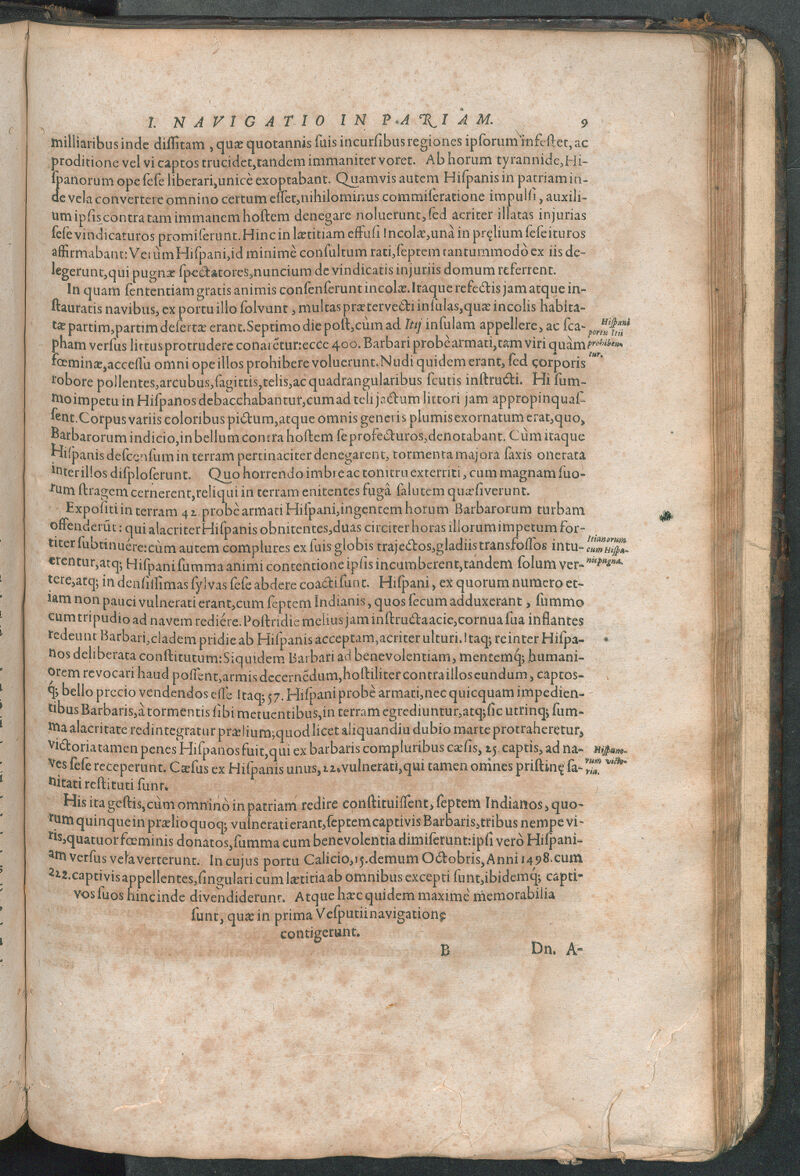 I. NAVIGATIO IN PARIAM. 9
milliaribus inde dissitam, quæ quotannis suis incursibus regiones ipsorum infestet, ac
proditione vel vi captos trucidet, tandem immaniter voret. Ab horum tyrannide, Hi-
spanorum ope sese liberari, unicè exoptabant. Quamvis autem Hispanis in patriam in-
de vela convertere omnino certum esset, nihilominus commiseratione impulsi, auxili-
um ipsis contra tam immanem hostem denegare noluerunt, sed acriter illatas injurias
sese vindicaturos promiserunt. Hinc in lætitiam effusi Incolæ, unà in pręlium sese ituros
affirmabant: Verùm Hispani, id minimè consultum rati, septem tantummodo ex iis de-
legerunt, qui pugnæ spectatores, nuncium de vindicatis injuriis domum referrent.
In quam sententiam gratis animis consenserunt incolæ. Itaque refectis jam atque in-
stauratis navibus, ex portu illo solvunt, multas prætervecti insulas, quæ incolis habita-
tæ partim, partim desertæ erant. Septimo die post, cùm ad Itij insulam appellere, ac sca-
Hispani portu Itii prohibentur.
pham versus littus protrudere conarētur: ecce 400. Barbari probè armati, tam viri quàm
fœminæ, accessu omni ope illos prohibere voluerunt. Nudi quidem erant, sed corporis
robore pollentes, arcubus, sagittis, telis, ac quadrangularibus scutis instructi. Hi sum-
mo impetu in Hispanos debacchabantur, cum ad teli jactum littori jam appropinquas-
sent. Corpus variis coloribus pictum, atque omnis generis plumis exornatum erat, quo,
Barbarorum indicio, in bellum contra hostem se profecturos, denotabant. Cùm itaque
Hispanis descensum in terram pertinaciter denegarent, tormenta majora saxis onerata
inter illos disploserunt. Quo horrendo imbre ac tonitru exterriti, cum magnam suo-
rum stragem cernerent, reliqui in terram enitentes fugâ salutem quæsiverunt.
Expositi in terram 42 probè armati Hispani, ingentem horum Barbarorum turbam
offenderūt: qui alacriter Hispanis obnitentes, duas circiter horas illorum impetum for-
titer subtinuére: cùm autem complures ex suis globis trajectos, gladiis transfossos intu-
Itianorum cum Hispanis pugna.
erentur, atq; Hispani summa animi contentione ipsis incumberent, tandem solum ver-
tere, atq; in densissimas sylvas sese abdere coacti sunt. Hispani, ex quorum numero et-
iam non pauci vulnerati erant, cum septem Indianis, quos secum adduxerant, summo
cum tripudio ad navem rediére. Postridie melius jam instructa acie, cornua sua inflantes
redeunt Barbari, cladem pridie ab Hispanis acceptam, acriter ulturi. Itaq; re inter Hispa-
nos deliberata constitutum: Siquidem Barbari ad benevolentiam, mentemq; humani-
orem revocari haud possent, armis decernēdum, hostiliter contra illos eundum, captos-
q; bello precio vendendos esse Itaq; 57. Hispani probè armati, nec quicquam impedien-
tibus Barbaris, à tormentis sibi metuentibus, in terram egrediuntur, atq; sic utrinq; sum-
ma alacritate redintegratur prælium; quod licet aliquandiu dubio marte protraheretur,
victoria tamen penes Hispanos fuit, qui ex barbaris compluribus cæsis, 25 captis, ad na-
Hispanorum victoria.
ves sese receperunt. Cæsus ex Hispanis unus, 22. vulnerati, qui tamen omnes pristinę sa-
nitati restituti sunt.
His ita gestis, cùm omninò in patriam redire constituissent, septem Indianos, quo-
rum quinque in prælio quoq; vulnerati erant, septem captivis Barbaris, tribus nempe vi-
ris, quatuor fœminis donatos, summa cum benevolentia dimiserunt: ipsi verò Hispani-
am versus vela verterunt. In cujus portu Calicio, 15. demum Octobris, Anni 1498. cum
222. captivis appellentes, singulari cum lætitia ab omnibus excepti sunt, ibidemq; capti-
vos suos hinc inde divendiderunt. Atque hæc quidem maximè memorabilia
sunt, quæ in prima Vesputii navigatione
contigerunt.
B Dn. A-